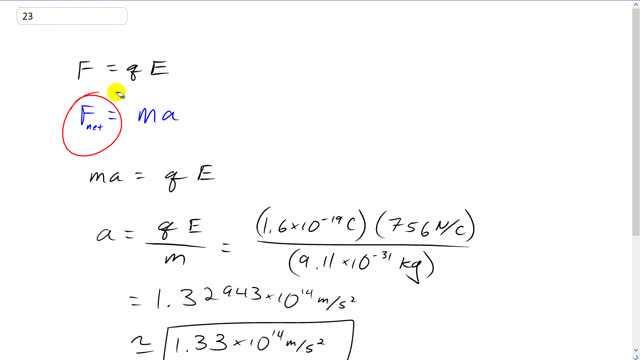 23
F = qE
F net = ma
ma = qE
a = qE / m = (1.6×10⁻¹⁹C)(756N/C) / (9.11×10⁻³¹kg)
= 1.32943×10¹⁴m/s²
≃ 1.33×10¹⁴m/s²